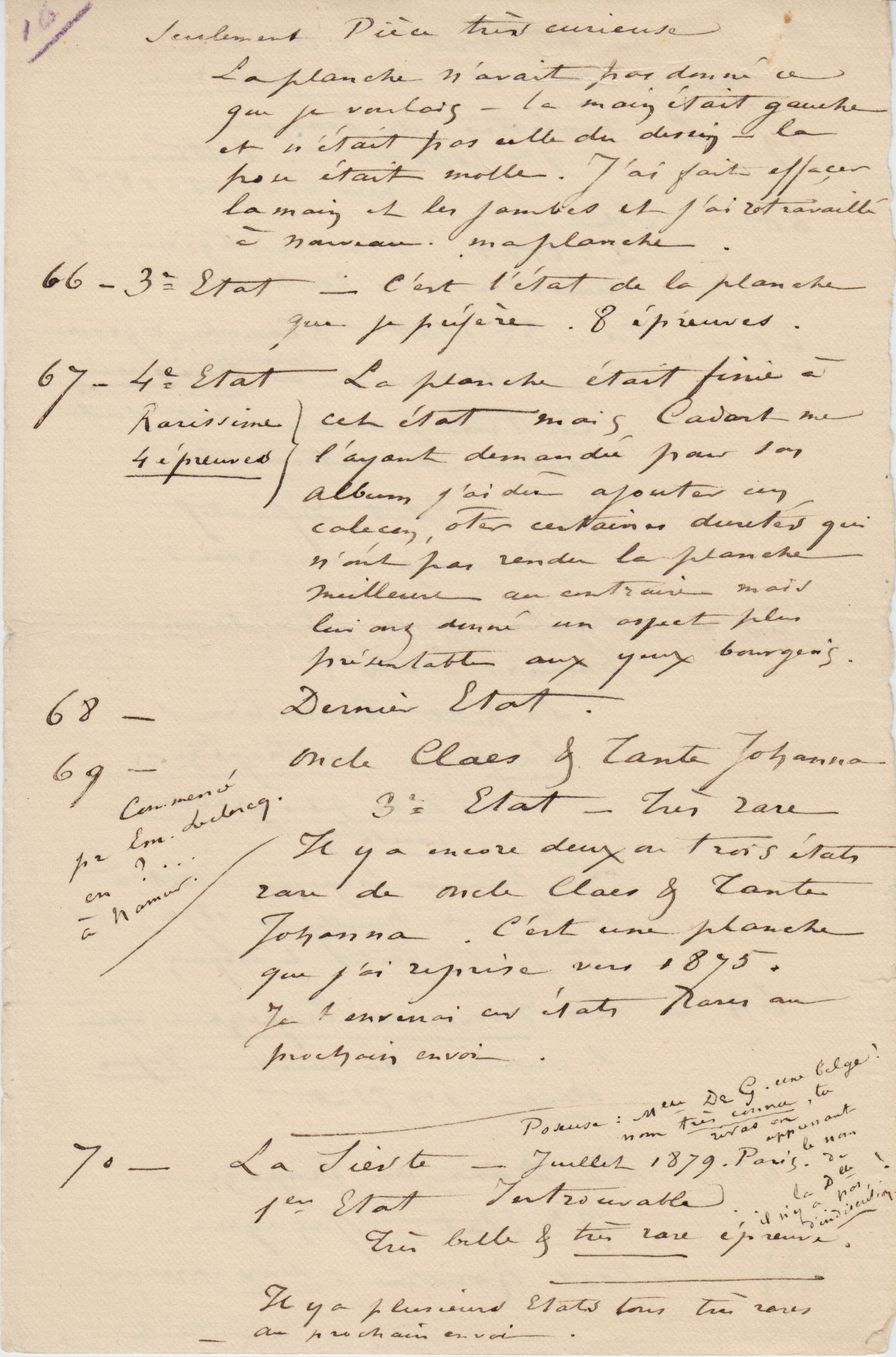 16
Seulement Pièce très curieuse
La planche n'avait pas donné ce
que je voulais – la main était gauche
et n'était pas celle du dessin – la
pose était molle. J'ai fait effaçer
la main et les jambes et j'ai retravaillé
à nouveau ma planche.
66 – 3e Etat – C'est l'état de la planche
que je préfère. 8 épreuves.
67 – 4e Etat La planche était finie à
Rarissime cet état mais Cadart me
4 épreuves l'ayant demandée pour son
album j'ai dû ajouter un
caleçon, ôter certaines duretés qui
n'ont pas rendu la planche
meilleure au contraire mais
lui ont donné un aspect plus
présentable aux yeux bourgeois.
68 – Dernier Etat.
69 – Oncle Claes & Tante Johanna
3e Etat – Très rare
Commencé
pr Em. Leclercq.
en ? ...
à Namur.
Il y a encore deux ou trois états
rare de Oncle Claes & Tante
Johanna. C'est une planche
que j'ai reprise vers 1875.
Je t'enverrai ces états Rares au
prochain envoi.
Poseuse : Melle De G. une belge!
nom très connu, tu
riras en apprenant
le nom de
la Delle !
il n'y a pas
d'indiscrétion
70 – La Sieste – Juillet 1879. Paris.
1er Etat Introuvable.
Très belle & très rare épreuve.
Il y a plusieurs Etats tous très rares
au prochain envoi.